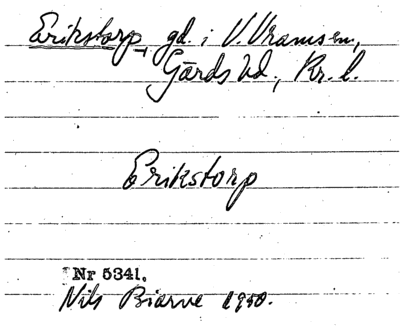 Erikstorp, gd. i V. Vramsen,
Gärds hd., Kr. l.
Erikstorp
Nr 5341.
Nils Biarve 1950.